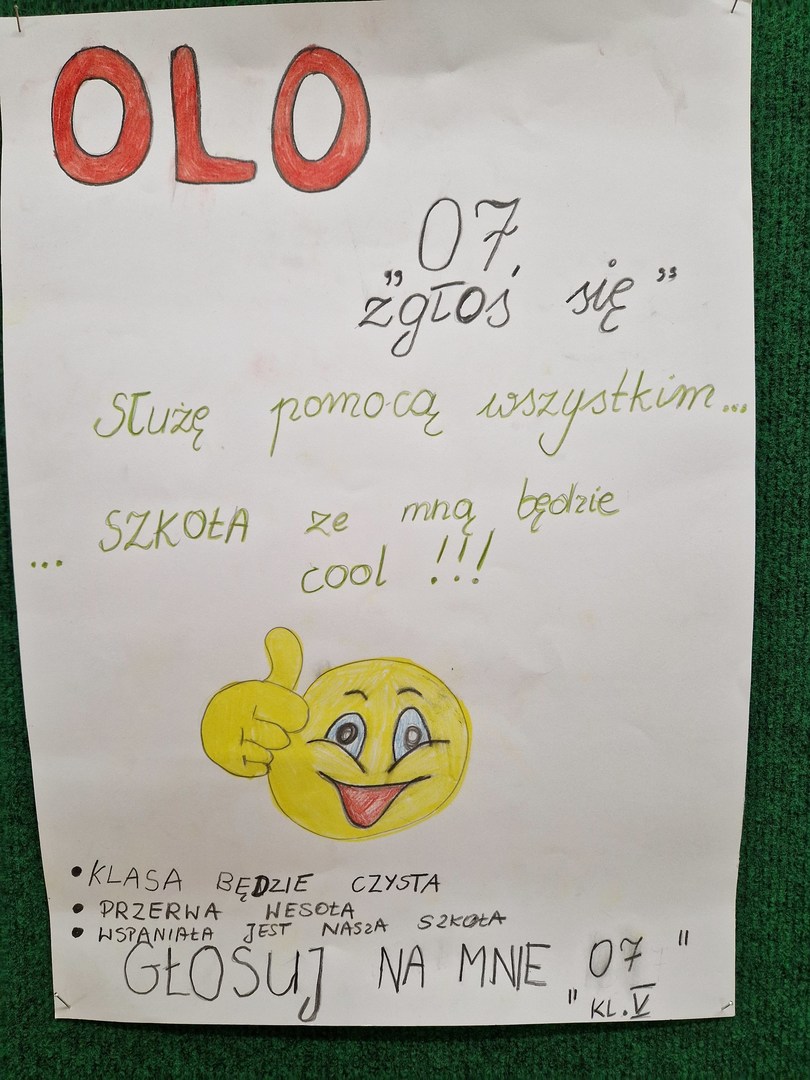 OLO
07
„zgłoś się”
Służę pomocą wszystkim...
... SZKOŁA ze mną będzie
cool !!!
• KLASA BĘDZIE CZYSTA
• PRZERWA WESOŁA
• WSPANIAŁA JEST NASZA SZKOŁA
GŁOSUJ NA MNIE 07 "
" KL. V